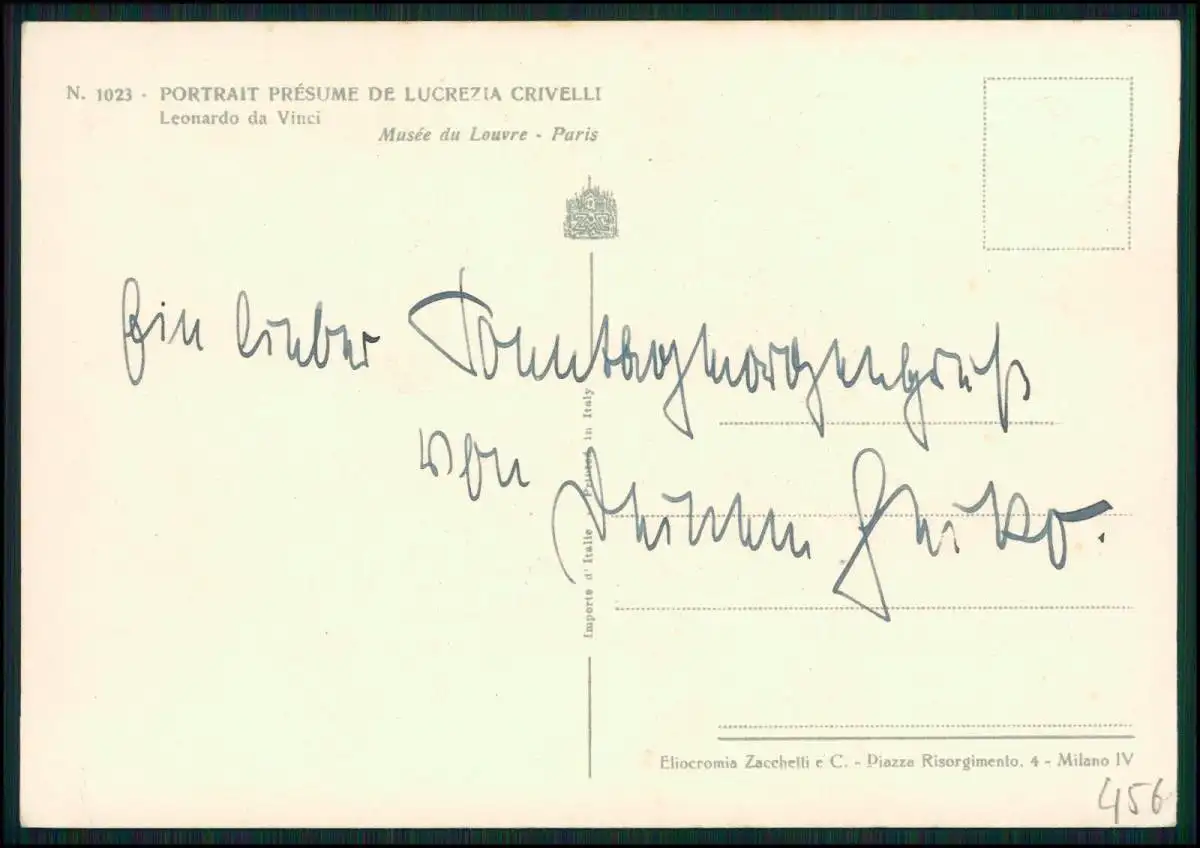 N. 1023 - PORTRAIT PRÉSUME DE LUCREZIA CRIVELLI
Leonardo da Vinci
Musée du Louvre - Paris
Ein lieber Sonntagmorgengruß
von Heiko.
Importe d'Italie - Printed in Italy
Eliocromia Zacchelli e C. - Piazza Risorgimento, 4 - Milano IV
456